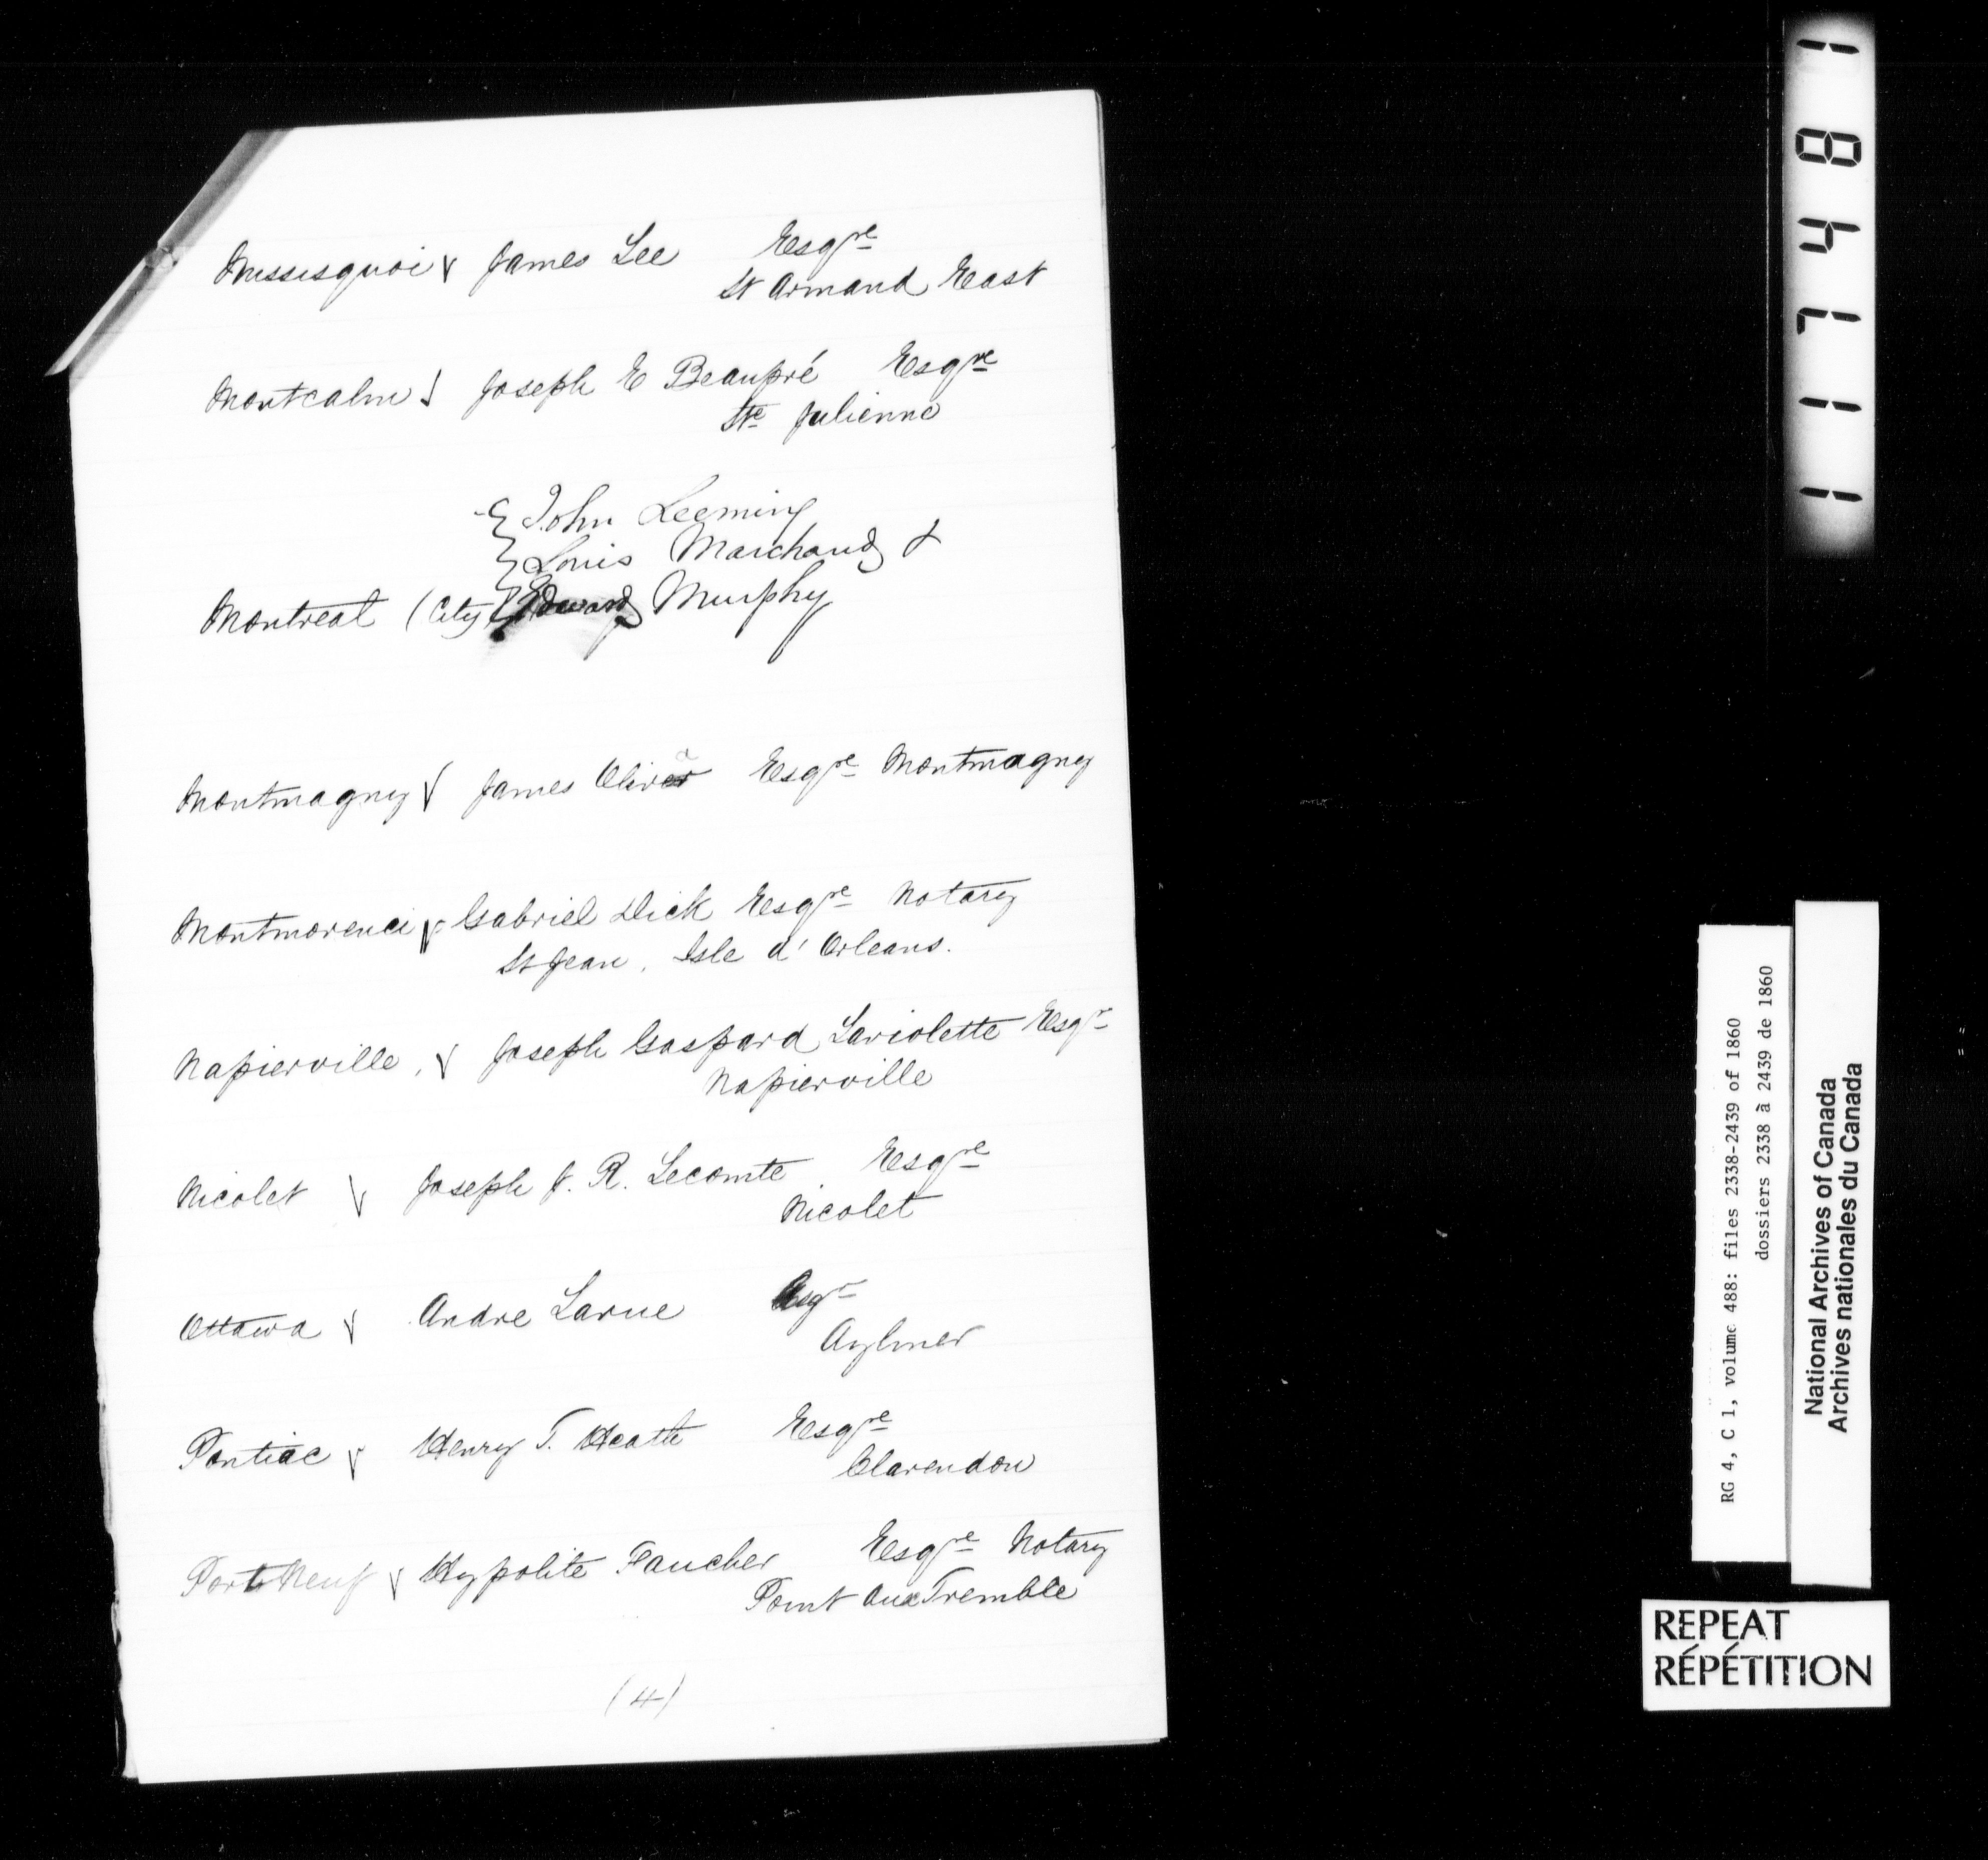 Missisquoi √ James Lee Esqre
St Armand East
Montcalm √ Joseph E Beaupré Esqre
Ste Julienne
John Leeming
Louis Marchand &
Montreal (City) Edward Murphy
Montmagny √ James Oliva Esqre Montmagny
Montmorenci √ Gabriel Dick Esqre Notary
St Jean, Isle d'Orleans.
Napierville, √ Joseph Gaspard Laviolette Esqr
Napierville
Nicolet √ Joseph J. R. Lecomte Esqre
Nicolet
Ottawa √ Andre Larue Esqr
Aylmer
Pontiac √ Henry T. Heath Esqre
Clarendon
Port Neuf √ Hypolite Faucher Esqre Notary
Point Aux Tremble
(4)
117481
RG 4, C 1, volume 488: files 2338-2439 of 1860
dossiers 2338 à 2439 de 1860
National Archives of Canada
Archives nationales du Canada
REPEAT
RÉPÉTITION